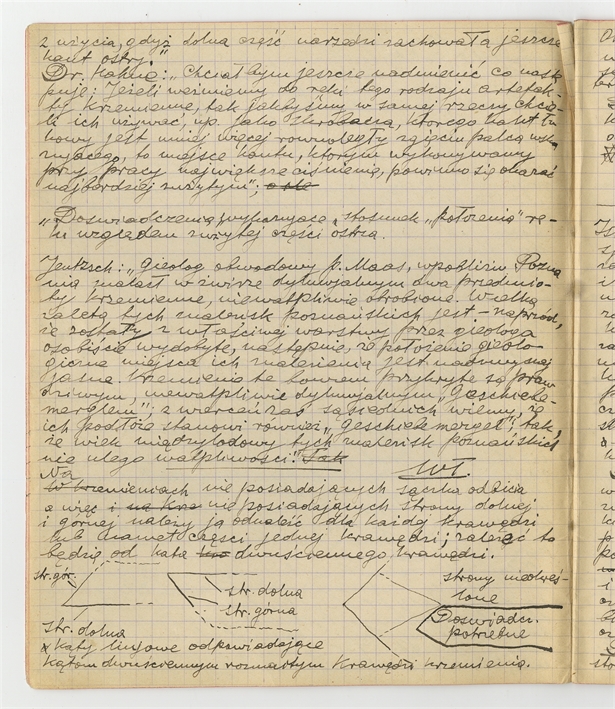 z użycia, gdyż dolna część narzędzi zachowała jeszcze
kant ostry."
Dr. Hahne: „Chciałbym jeszcze nadmienić co nastę
puje: Jeżeli weźmiemy do ręki tego rodzaju artefak-
ty krzemienne, tak jakbyśmy w samej rzeczy chcie-
li ich używać, np. jako skrobacza, którego kant
kowy jest mniej więcej równoległy zgięciu palca wska
zującego, to miejsce kantu, którym wykonywamy
przy pracy największe ciśnienie, powinno się okazać
najbardziej zużytym";
„Doświadczenia, wykazujące „stosunek „położenia" rę-
ki względem zużytej części ostrza.
Jentzsch: „Geolog obwodowy p. Maas, w pobliżu Pozna
nia znalazł w żwirze dyluwjalnym dwa przedmio-
ty krzemienne, niewątpliwie obrobione. Wielką
zaletą tych znalezisk poznańskich jest – naprzód,
że zostały z właściwej warstwy przez geologa
osobiście wydobyte, następnie, że położenie geolo-
giczne miejsca ich znalezienia jest nadzwyczaj
jasne. Krzemienie te bowiem przykryte są praw
dziwym, niewątpliwie dyluwjalnym „Geschiebe-
mergelem"; z wierceń zaś sąsiednich wiemy, że
ich podłoże stanowi również „Geschiebemergel"; tak,
że wiek międzylodowy tych znalezisk poznańskich
nie ulega wątpliwości." Tak
Na
W krzemieniach nie posiadających sączka odbicia
a więc i na krze nie posiadających strony dolnej
i górnej należy ją odnaleźć dla każdej krawędzi
lub nawet części jednej krawędzi; zależeć to
będzie od kąta dwuściennego krawędzi.
str. gór.
str. dolna
str. górna
strony nieokreś-
lone
Doświadcz.
potrzebne
str. dolna
x kąty linjowe odpowiadające
kątom dwuściennym rozmaitym krawędzi krzemienia.